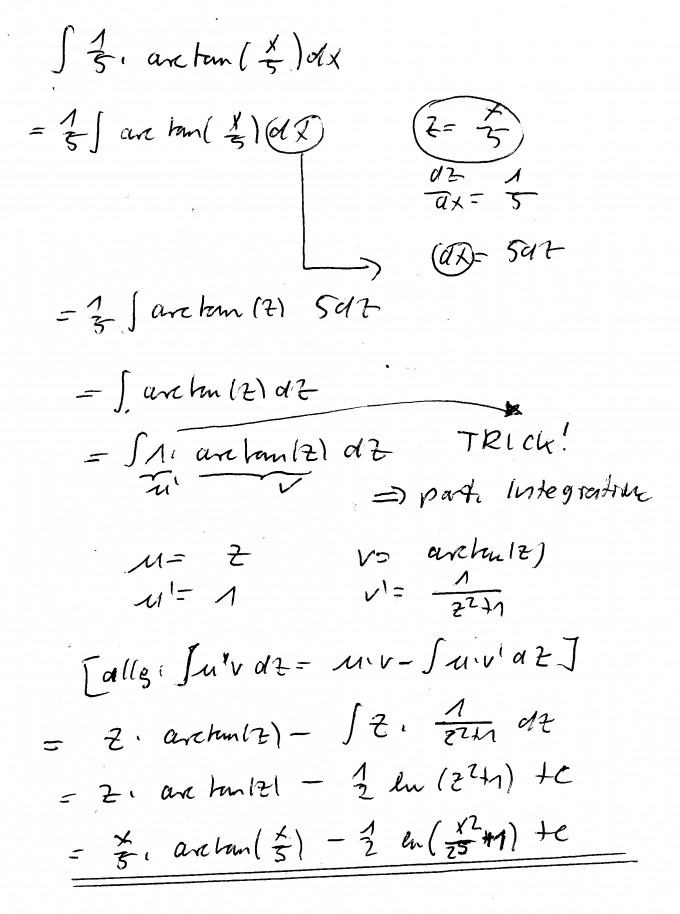 ∫ 1/5 · arctan(x/5) dx
= 1/5 ∫ arctan(x/5) dx
z = x/5
dz/dx = 1/5
dx = 5dz
= 1/5 ∫ arctan(z) 5dz
= ∫ arctan(z) dz
= ∫ 1 · arctan(z) dz TRICK!
u' v
=> part. Integration
u = z v = arctan(z)
u' = 1 v' = 1/(z²+1)
[allg: ∫ u'v dz = u·v - ∫ u·v' dz]
= z · arctan(z) - ∫ z · 1/(z²+1) dz
= z · arctan(z) - 1/2 ln(z²+1) + C
= x/5 · arctan(x/5) - 1/2 ln(x²/25 + 1) + C